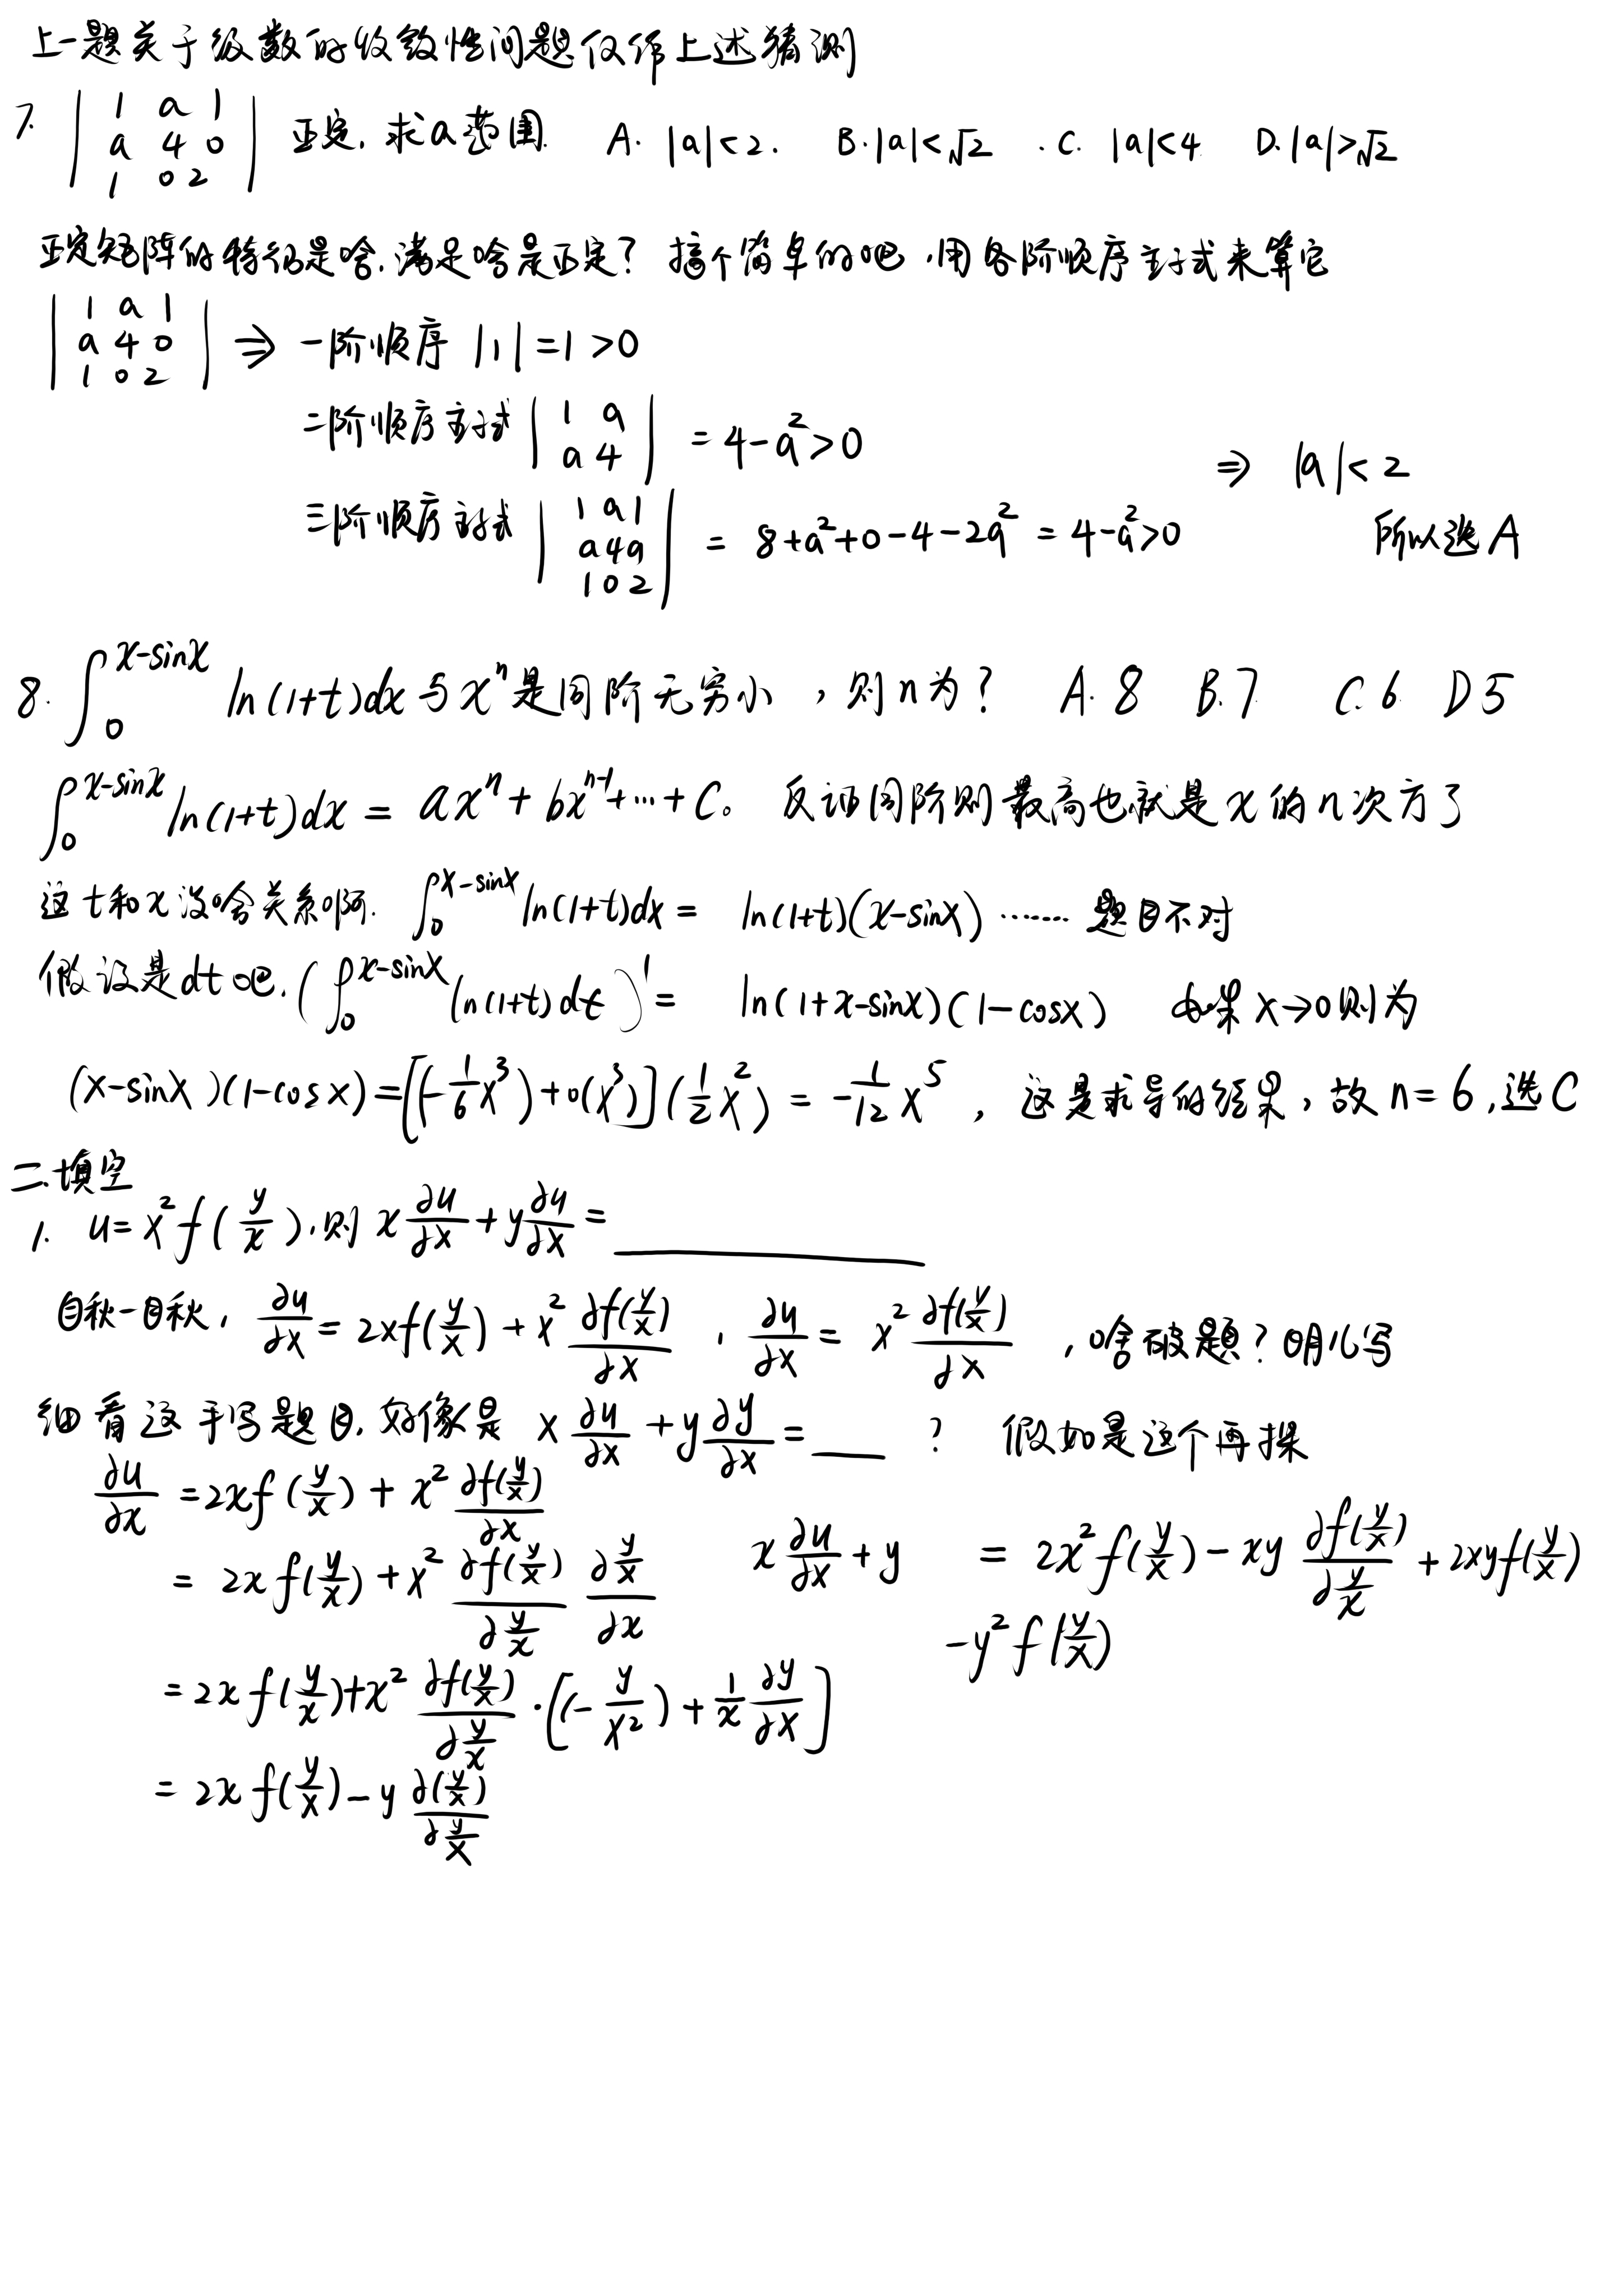 上一题关于级数的收敛性问题仅作上述猜测
7. | 1 a 1 | 正定, 求a范围. A. |a|<2. B. |a|<√2 . C. |a|<4 D. |a|>√2
| a 4 0 |
| 1 0 2 |
正定矩阵的特征是啥, 满足啥是正定? 搞个简单的吧, 用各阶顺序主子式来算它
| 1 a 1 |
| a 4 0 | ⇒ 一阶顺序 |1| = 1 > 0
| 1 0 2 |
二阶顺序主子式 | 1 a | = 4-a² > 0
| a 4 |
⇒ |a| < 2
三阶顺序主子式 | 1 a 1 | = 8+a²+0-4-2a² = 4-a²>0 所以选A
| a 4 a |
| 1 0 2 |
8. ∫₀^(x-sinx) ln(1+t)dx 与 xⁿ 是同阶无穷小, 则n为? A. 8 B. 7 C. 6. D 5
∫₀^(x-sinx) ln(1+t)dx = axⁿ + bxⁿ⁻¹+…+C。 反正同阶则最高也就是x的n次方了
这t和x没啥关系啊. ∫₀^(x-sinx) ln(1+t)dx = ln(1+t)(x-sinx) …… 题目不对
假设是dt吧. (∫₀^(x-sinx) ln(1+t)dt)' = ln(1+x-sinx)(1-cosx) 如果 x→0则为
(x-sinx)(1-cosx) = [(-1/6 x³)+o(x³)](1/2 x²) = -1/12 x⁵, 这是求导的结果, 故n=6, 选C
二.填空
1. u=x²f(y/x), 则 x ∂u/∂x + y ∂u/∂x = ______
自秋一目秋, ∂u/∂x = 2xf(y/x) + x² ∂f(y/x)/∂x , ∂u/∂x = x² ∂f(y/x)/∂x , 啥破题? 明儿写
细看这手写题目, 好像是 x ∂u/∂x + y ∂y/∂x = ___ ? 假如是这个再操
∂u/∂x = 2xf(y/x) + x² ∂f(y/x)/∂x
= 2xf(y/x) + x² ∂f(y/x)/∂(y/x) ∂(y/x)/∂x
= 2xf(y/x) + x² ∂f(y/x)/∂(y/x) · [(-y/x²) + 1/x ∂y/∂x]
= 2xf(y/x) - y ∂(y/x)/∂(y/x)
x ∂u/∂x + y = 2x²f(y/x) - xy ∂f(y/x)/∂(y/x) + 2xyf(y/x)
-y²f(y/x)